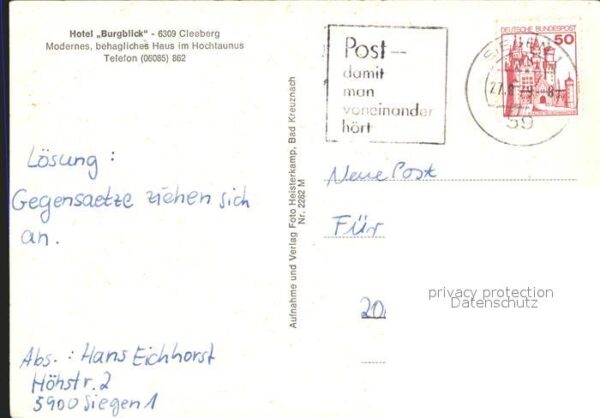 Hotel „Burgblick" - 6309 Cleeberg
Modernes, behagliches Haus im Hochtaunus
Telefon (06085) 862
Post –
damit
man
voneinander
hört
SIEGEN
27.
79 - 8
59
50
DEUTSCHE BUNDESPOST
Lösung :
Gegensaetze ziehen sich
an.
Abs. : Hans Eichhorst
Höhstr. 2
5900 Siegen 1
Aufnahme und Verlag Foto Heisterkamp, Bad Kreuznach
Nr. 2262 M
Neue Post
Für
20
privacy protection
Datenschutz